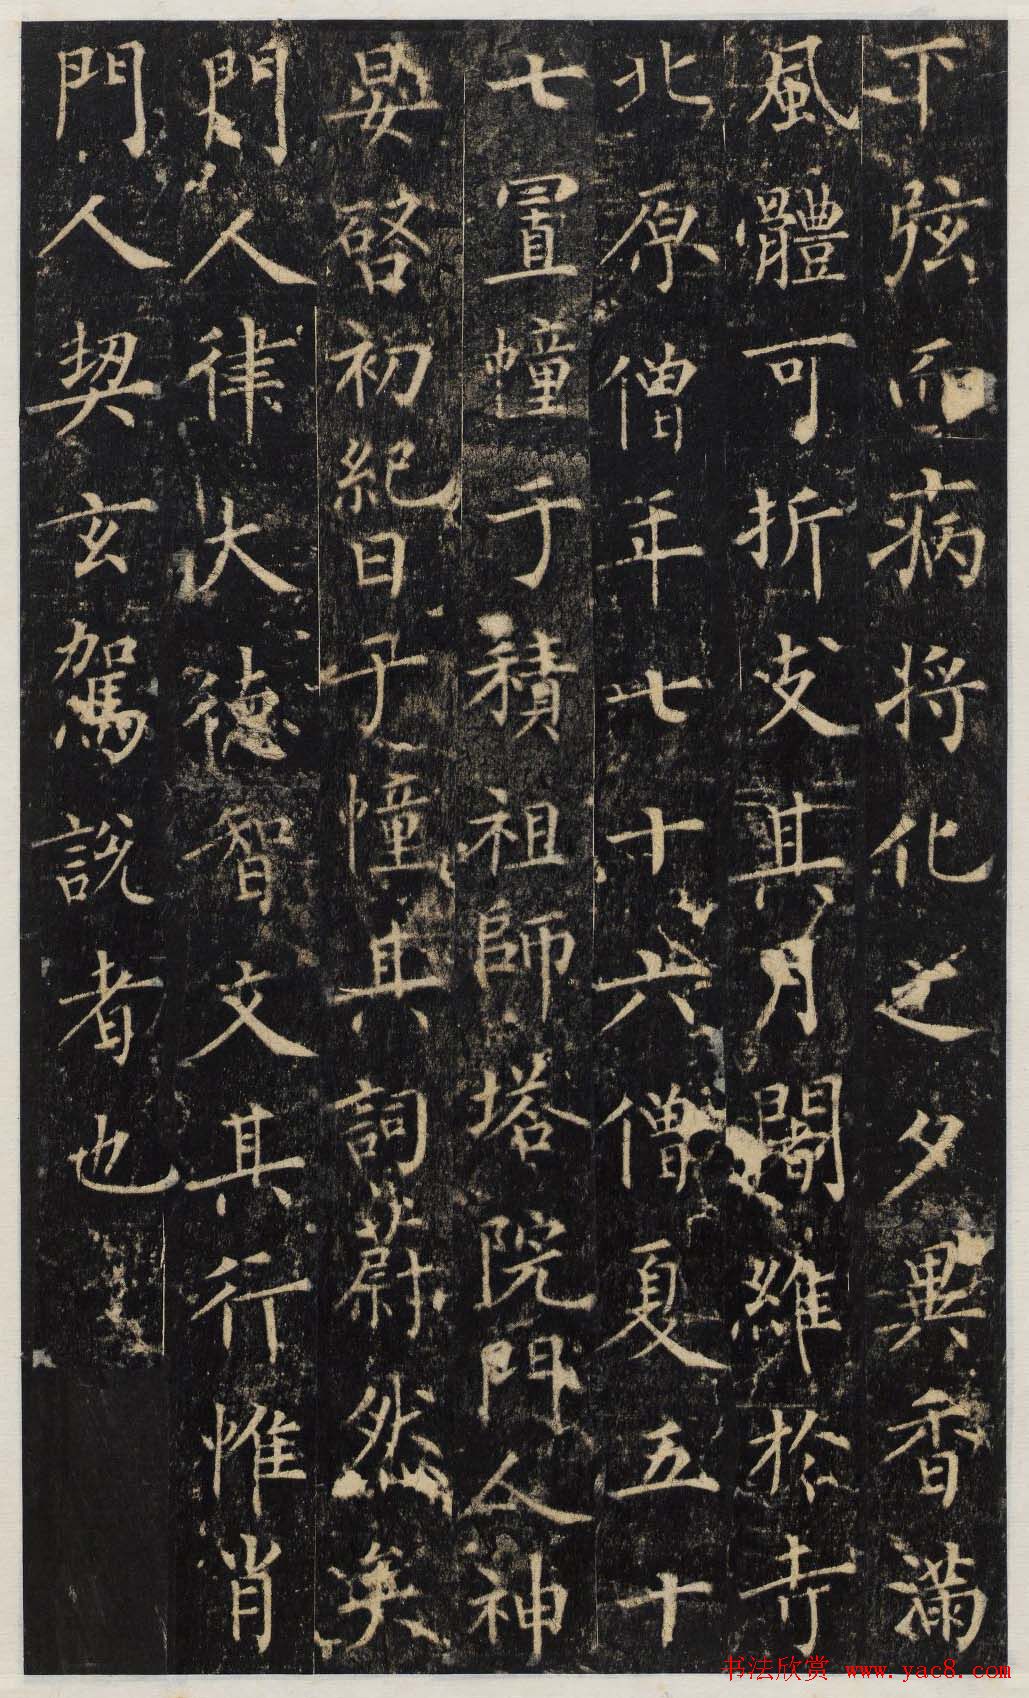 下弦而病将化之夕異香滿
風體可折支其月闍維於寺
北原僧年七十六僧夏五十
七置幢于積祖師塔院門人神
晏啓初紀日于幢其詞蔚然矣
門人律大德智文其行惟肖
門人契玄駕說者也
书法欣赏 www.yac8.com